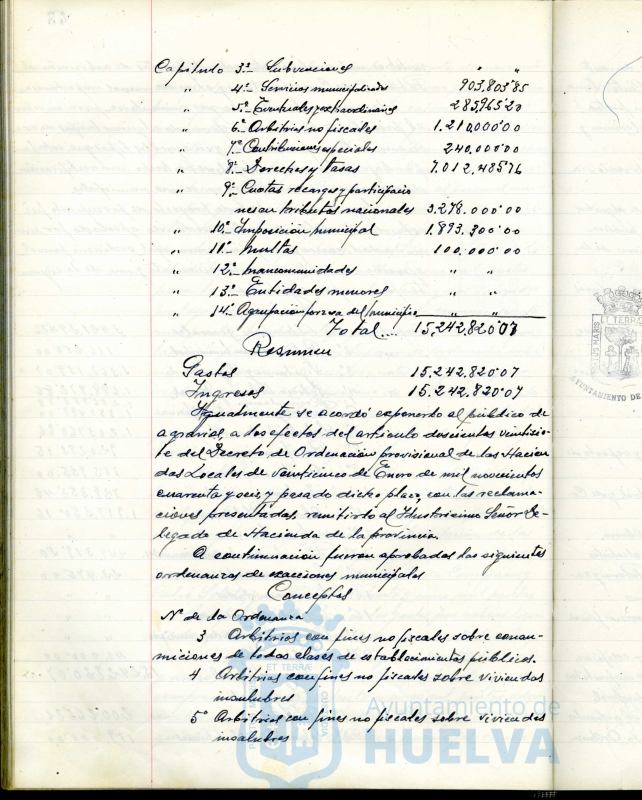 Capitulo 3º.- Subvenciones " "
" 4º.- Servicios municipalizados 903.803'85
" 5º.- Eventuales y extraordinarios 285,965'20
" 6º.- Arbitrios no fiscales 1.210,000'00
" 7º.- Contribuciones especiales 240.000'00
" 8º.- Derechos y tasas 7.012,485'76
" 9º.- Cuotas recargos y participacio
nes en tributos nacionales 3.278.000'00
" 10º.- Imposicion municipal 1.893,300'00
" 11º.- Multas 100.000'00
" 12º.- Mancomunidades " "
" 13º.- Entidades menores " "
" 14º.- Agrupacion forzosa del municipio " "
Total.... 15,242,820'07
Resumen
Gastos 15.242,820'07
Ingresos 15.242,820'07
Igualmente se acordó exponerlo al público de
a los efectos del articulo doscientos veintisie-
te del Decreto de Ordenación provisional de las Hacien
das Locales de veinticinco de Enero de mil novecientos
cuarenta y seis, y pasado dicho plazo, con las reclama-
ciones presentadas, remitirlo al Ilustrisimo Señor De-
legado de Hacienda de la provincia.
A continuación fueron aprobadas las siguientes
ordenanzas de exacciones municipales
Conceptos
Nº de la Ordenanza
3 Arbitrios con fines no fiscales sobre consu-
miciones de todas clases de establecimientos públicos.
4 Arbitrios con fines no fiscales sobre viviendas
insalubres
5º Arbitrios con fines no fiscales sobre viviendas
insalubres
Ayuntamiento de
HUELVA
ET TERRA
AYUNTAMIENTO DE